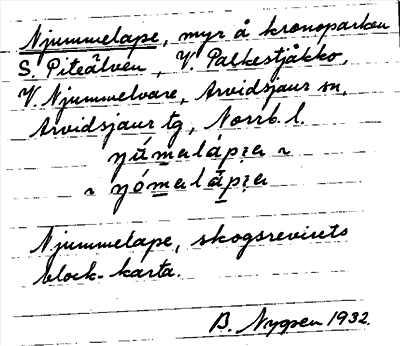 Njummelape, myr å kronoparken
S. Piteälven, V. Palkestjåkko,
V. Njummelvare, Arvidsjaur sn,
Arvidsjaur tg, Norrb. l.
Njummelape, skogsrevirets
block-karta.
B. Nygren 1932.